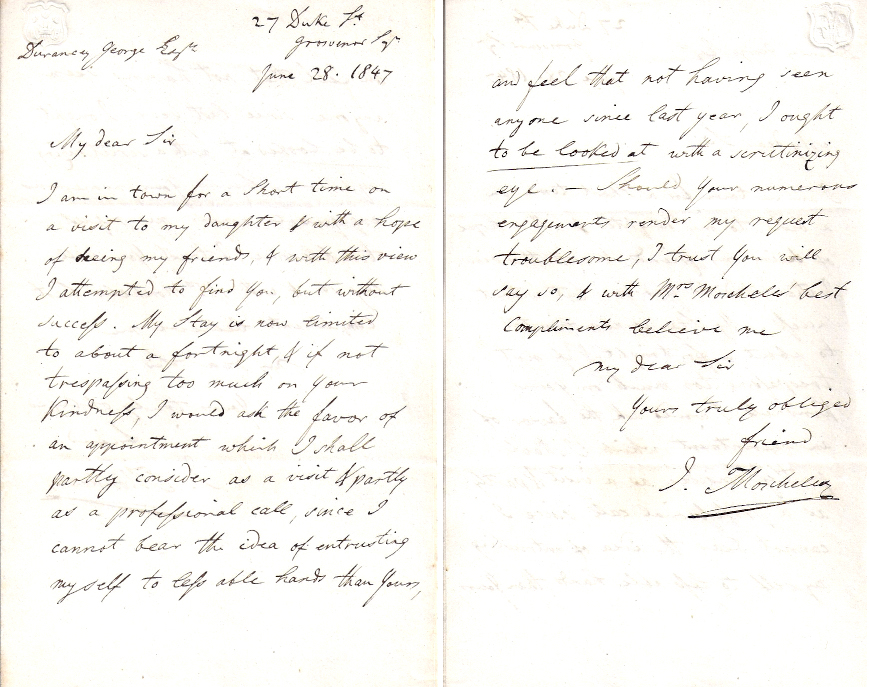 27 Duke St.
Durancey George Esqre
Grosvenor Sqr
June 28. 1847
My dear Sir
I am in town for a short time on
a visit to my daughter & with a hope
of seeing my friends, & with this view
I attempted to find you, but without
success. My stay is now limited
to about a fortnight, & if not
trespassing too much on your
kindness, I would ask the favor of
an appointment which I shall
partly consider as a visit & partly
as a professional call, since I
cannot bear the idea of entrusting
myself to less able hands than yours,
and feel that not having seen
anyone since last year, I ought
to be looked at with a scrutinizing
eye. — Should your numerous
engagements render my request
troublesome, I trust you will
say so, & with Mrs Moscheles' best
Compliments believe me
my dear Sir
Yours truly obliged
friend
I. Moscheles